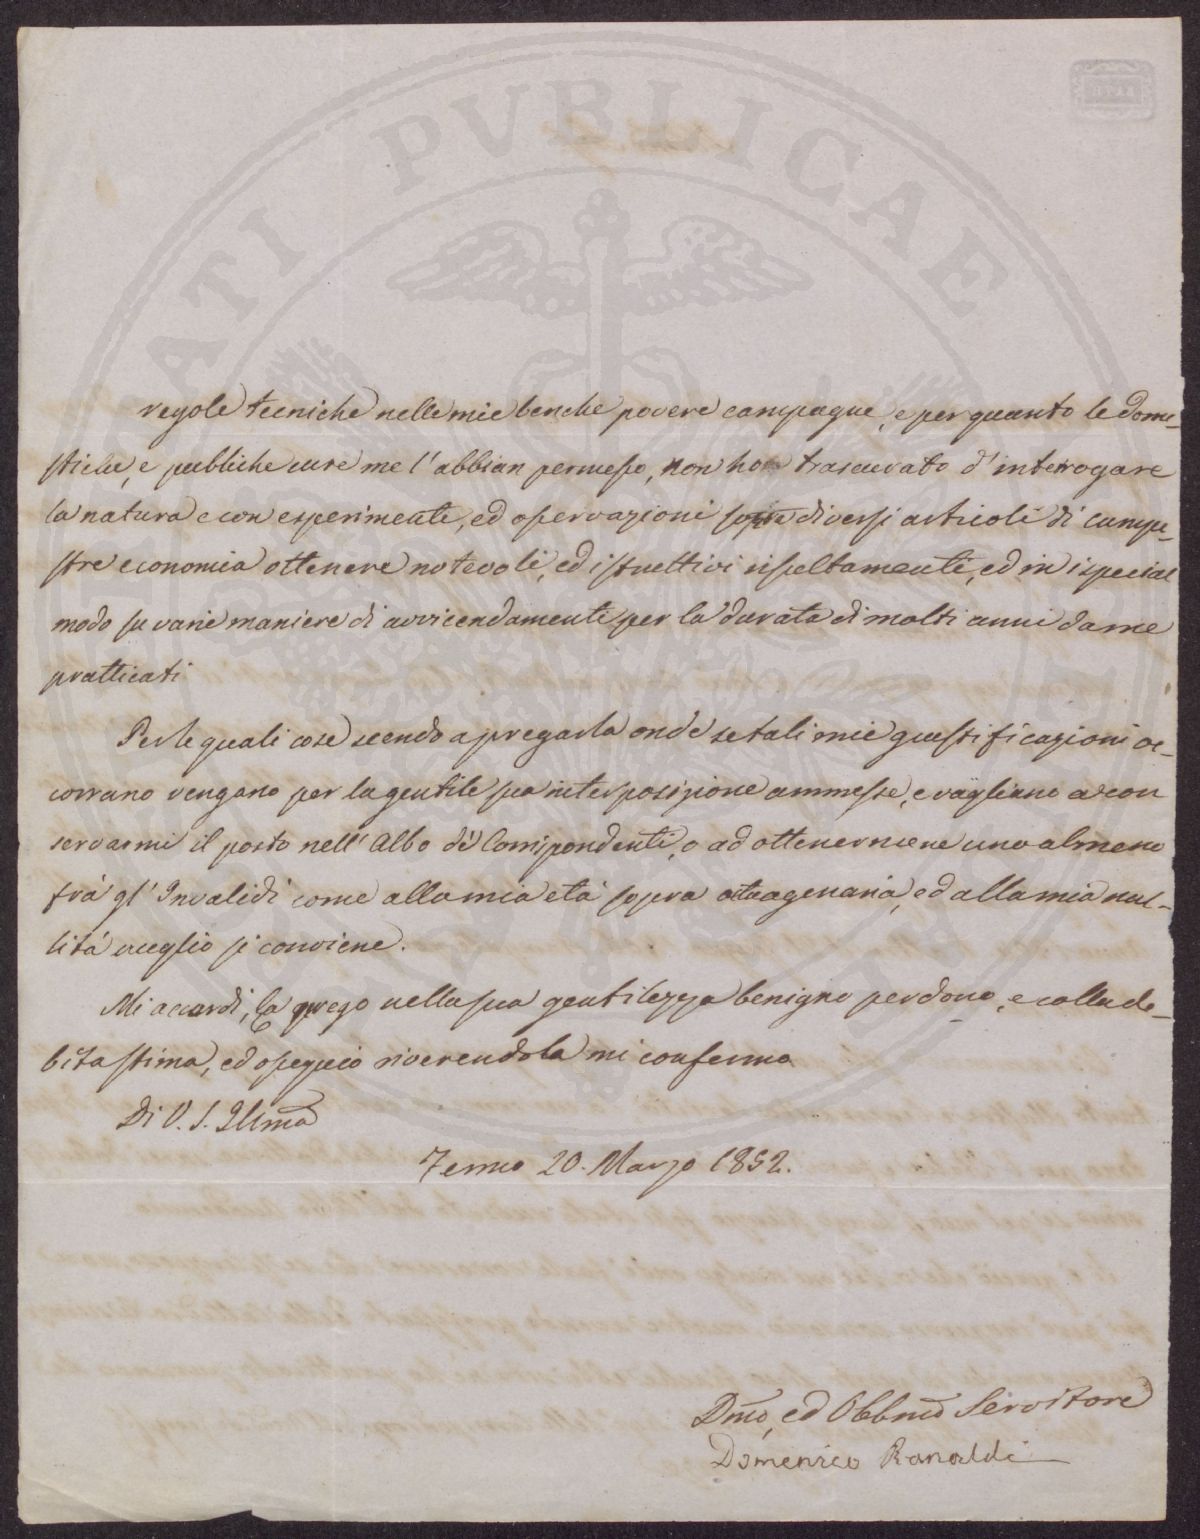 PVBLICAE
regole tecniche nelle mie benche povere campagne, e per quanto le dome-
stiche, e pubbliche cure me l'abbian permesso, non ho trascurato d'interrogare
la natura e con esperimenti, ed osservazioni sopra diversi articoli di campe-
stre economia ottenere notevoli, ed istruttivi risultamenti, ed in ispecial
modo su varie maniere di avvicendamenti per la durata di molti anni da me
pratticati
Per le quali cose scendo a pregarla onde se tali mie giustificazioni oc-
corrano vengano per la gentile sua interposizione ammesse, e vagliano a con
servarmi il posto nell'Albo de' Corrispondenti, o ad ottenermene uno almeno
frà gl'Invalidi come alla mia età sopra ottuagenaria, ed alla mia nul-
lità meglio si conviene.
Mi accordi, la prego nella sua gentilezza benigno perdono, e colla de-
bita stima, ed ossequio riverendola mi confermo
Di V. S. Illma
Fermo 20. Marzo 1852.
Dmo, ed Obbmo Servitore
Domenico Ranaldi